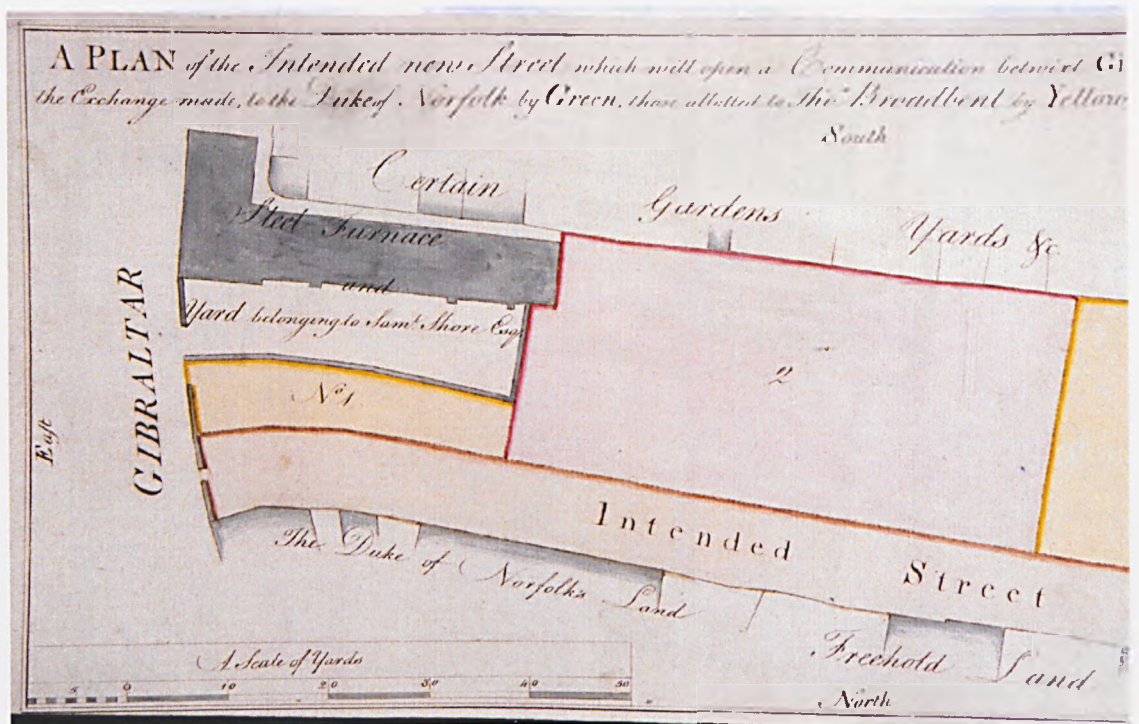 A PLAN of the Intended new Street which will open a Communication betwixt Gi
the Exchange made, to the Duke of Norfolk by Green, those allotted to Thos. Broadbent by Yellow
South
Certain Gardens Yards &c.
Steel Furnace
and
Yard belonging to Saml. Shore Esqr.
GIBRALTAR
East
No 1
2
Intended Street
The Duke of Norfolks Land
Freehold Land
A Scale of Yards
5 0 10 20 30 40 50
North